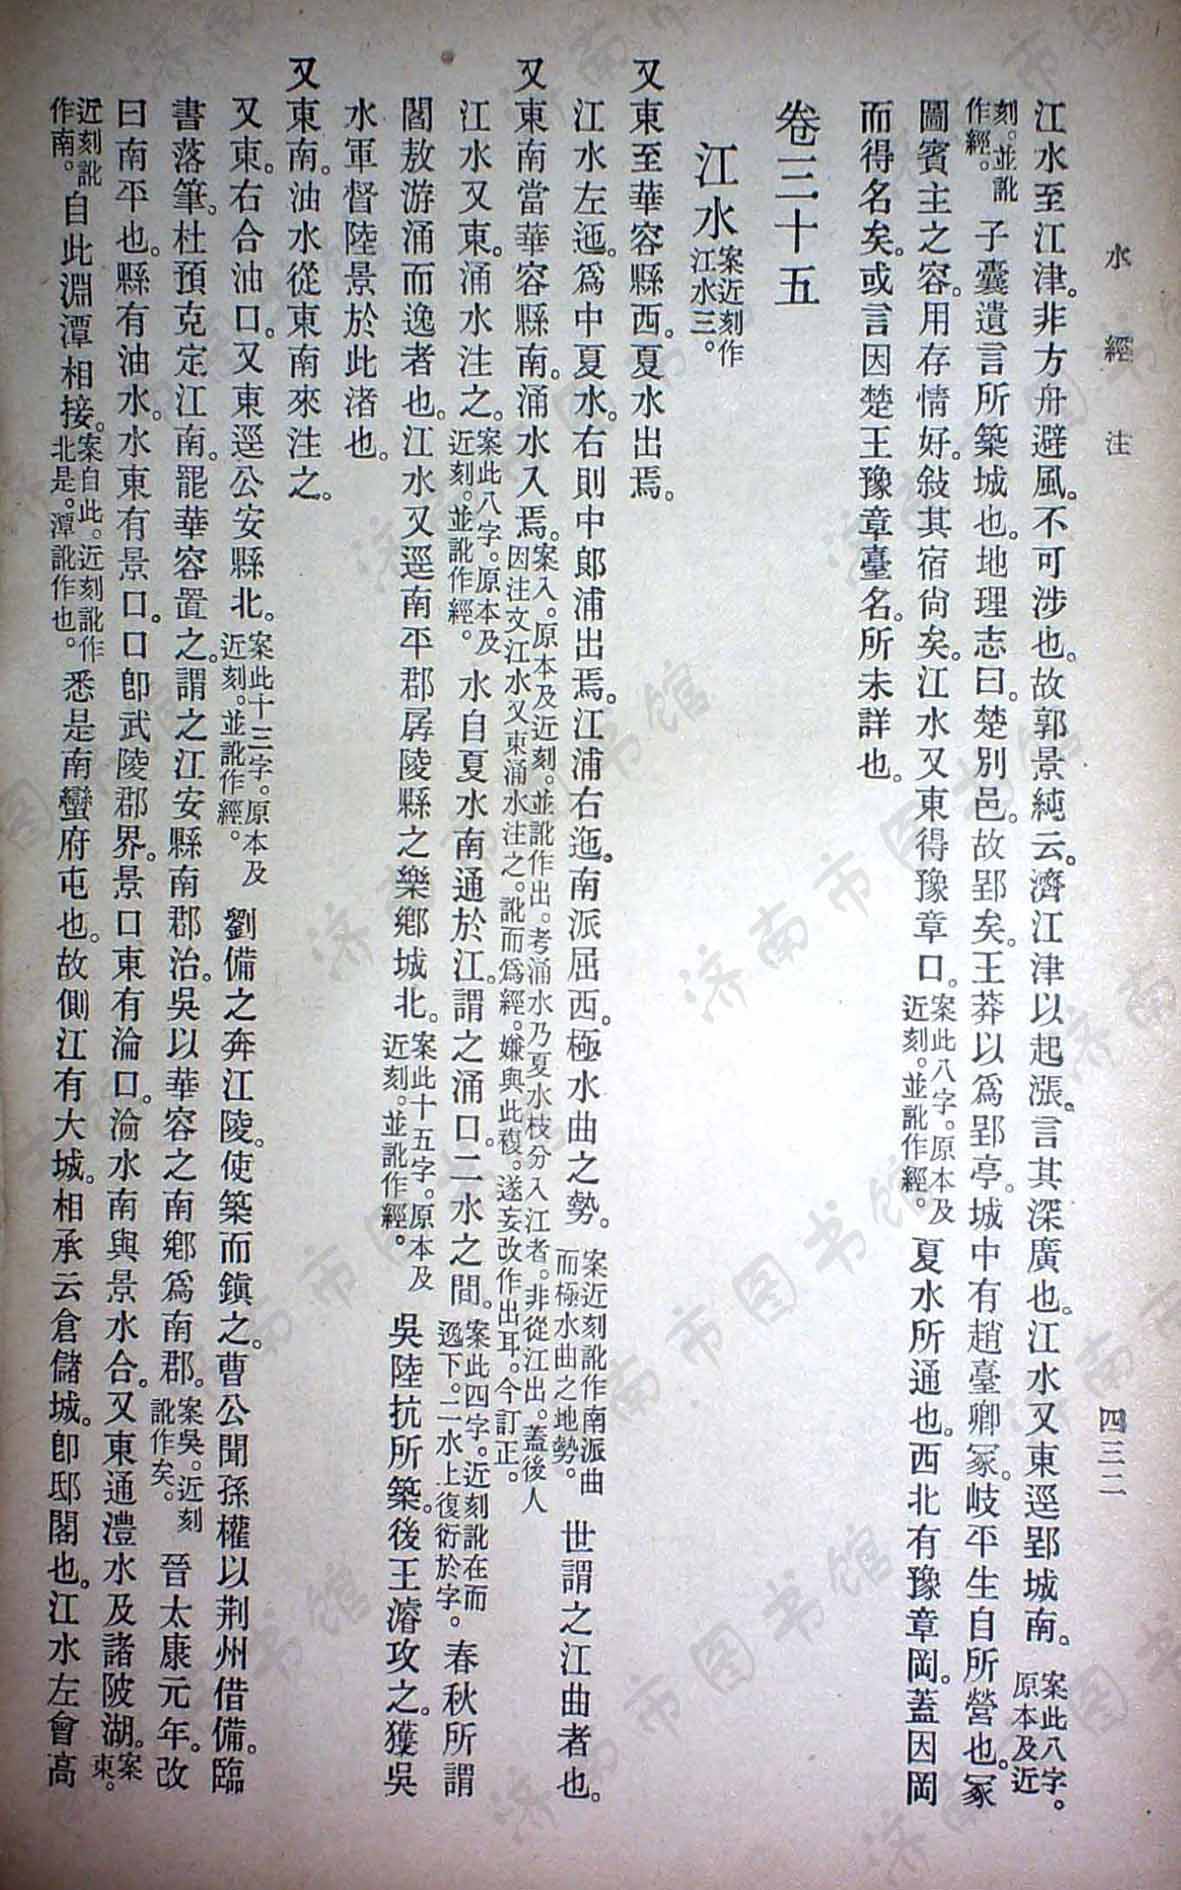 水經注
四三二
江水至江津。非方舟避風。不可涉也。故郭景純云。濟江津以起漲。言其深廣也。江水又東逕郢城南。案此八字。原本及近
刻。並訛作經。子囊遺言所築城也。地理志曰。楚別邑。故郢矣。王莽以爲郢亭。城中有趙臺卿冢。岐平生自所營也。冢
圖賓主之容。用存情好。敍其宿尙矣。江水又東得豫章口。案此八字。原本及近刻。並訛作經。夏水所通也。西北有豫章岡。蓋因岡
而得名矣。或言因楚王豫章臺名。所未詳也。
卷三十五
江水案近刻作江水三。
又東至華容縣西。夏水出焉。
江水左迤。爲中夏水。右則中郎浦出焉。江浦右迤。南派屈西。極水曲之勢。案近刻訛作南派曲而極水曲之地勢。世謂之江曲者也。
又東南當華容縣南。涌水入焉。案入。原本及近刻。並訛作出。考涌水乃夏水枝分入江者。非從江出。蓋後人因注文江水又東涌水注之。訛而爲經。嫌與此複。遂妄改作出耳。今訂正。
江水又東。涌水注之。案此八字。原本及近刻。並訛作經。水自夏水南通於江。謂之涌口。二水之間。案此四字。近刻訛在而逸下。二水上復衍於字。春秋所謂
閻敖游涌而逸者也。江水又逕南平郡孱陵縣之樂鄉城北。案此十五字。原本及近刻。並訛作經。吳陸抗所築。後王濬攻之。獲吳
水軍督陸景於此渚也。
又東南。油水從東南來注之。
又東。右合油口。又東逕公安縣北。案此十三字。原本及近刻。並訛作經。劉備之奔江陵。使築而鎭之。曹公聞孫權以荆州借備。臨
書落筆。杜預克定江南。罷華容置之。謂之江安縣南郡治。吳以華容之南鄉爲南郡。案吳。近刻訛作矣。晉太康元年。改
曰南平也。縣有油水。水東有景口。口卽武陵郡界。景口東有淪口。淪水南與景水合。又東通澧水及諸陂湖。案東。
近刻訛作南。自此淵潭相接。案自此。近刻訛作北是。潭訛作也。悉是南蠻府屯也。故側江有大城。相承云倉儲城。卽邸閣也。江水左會高